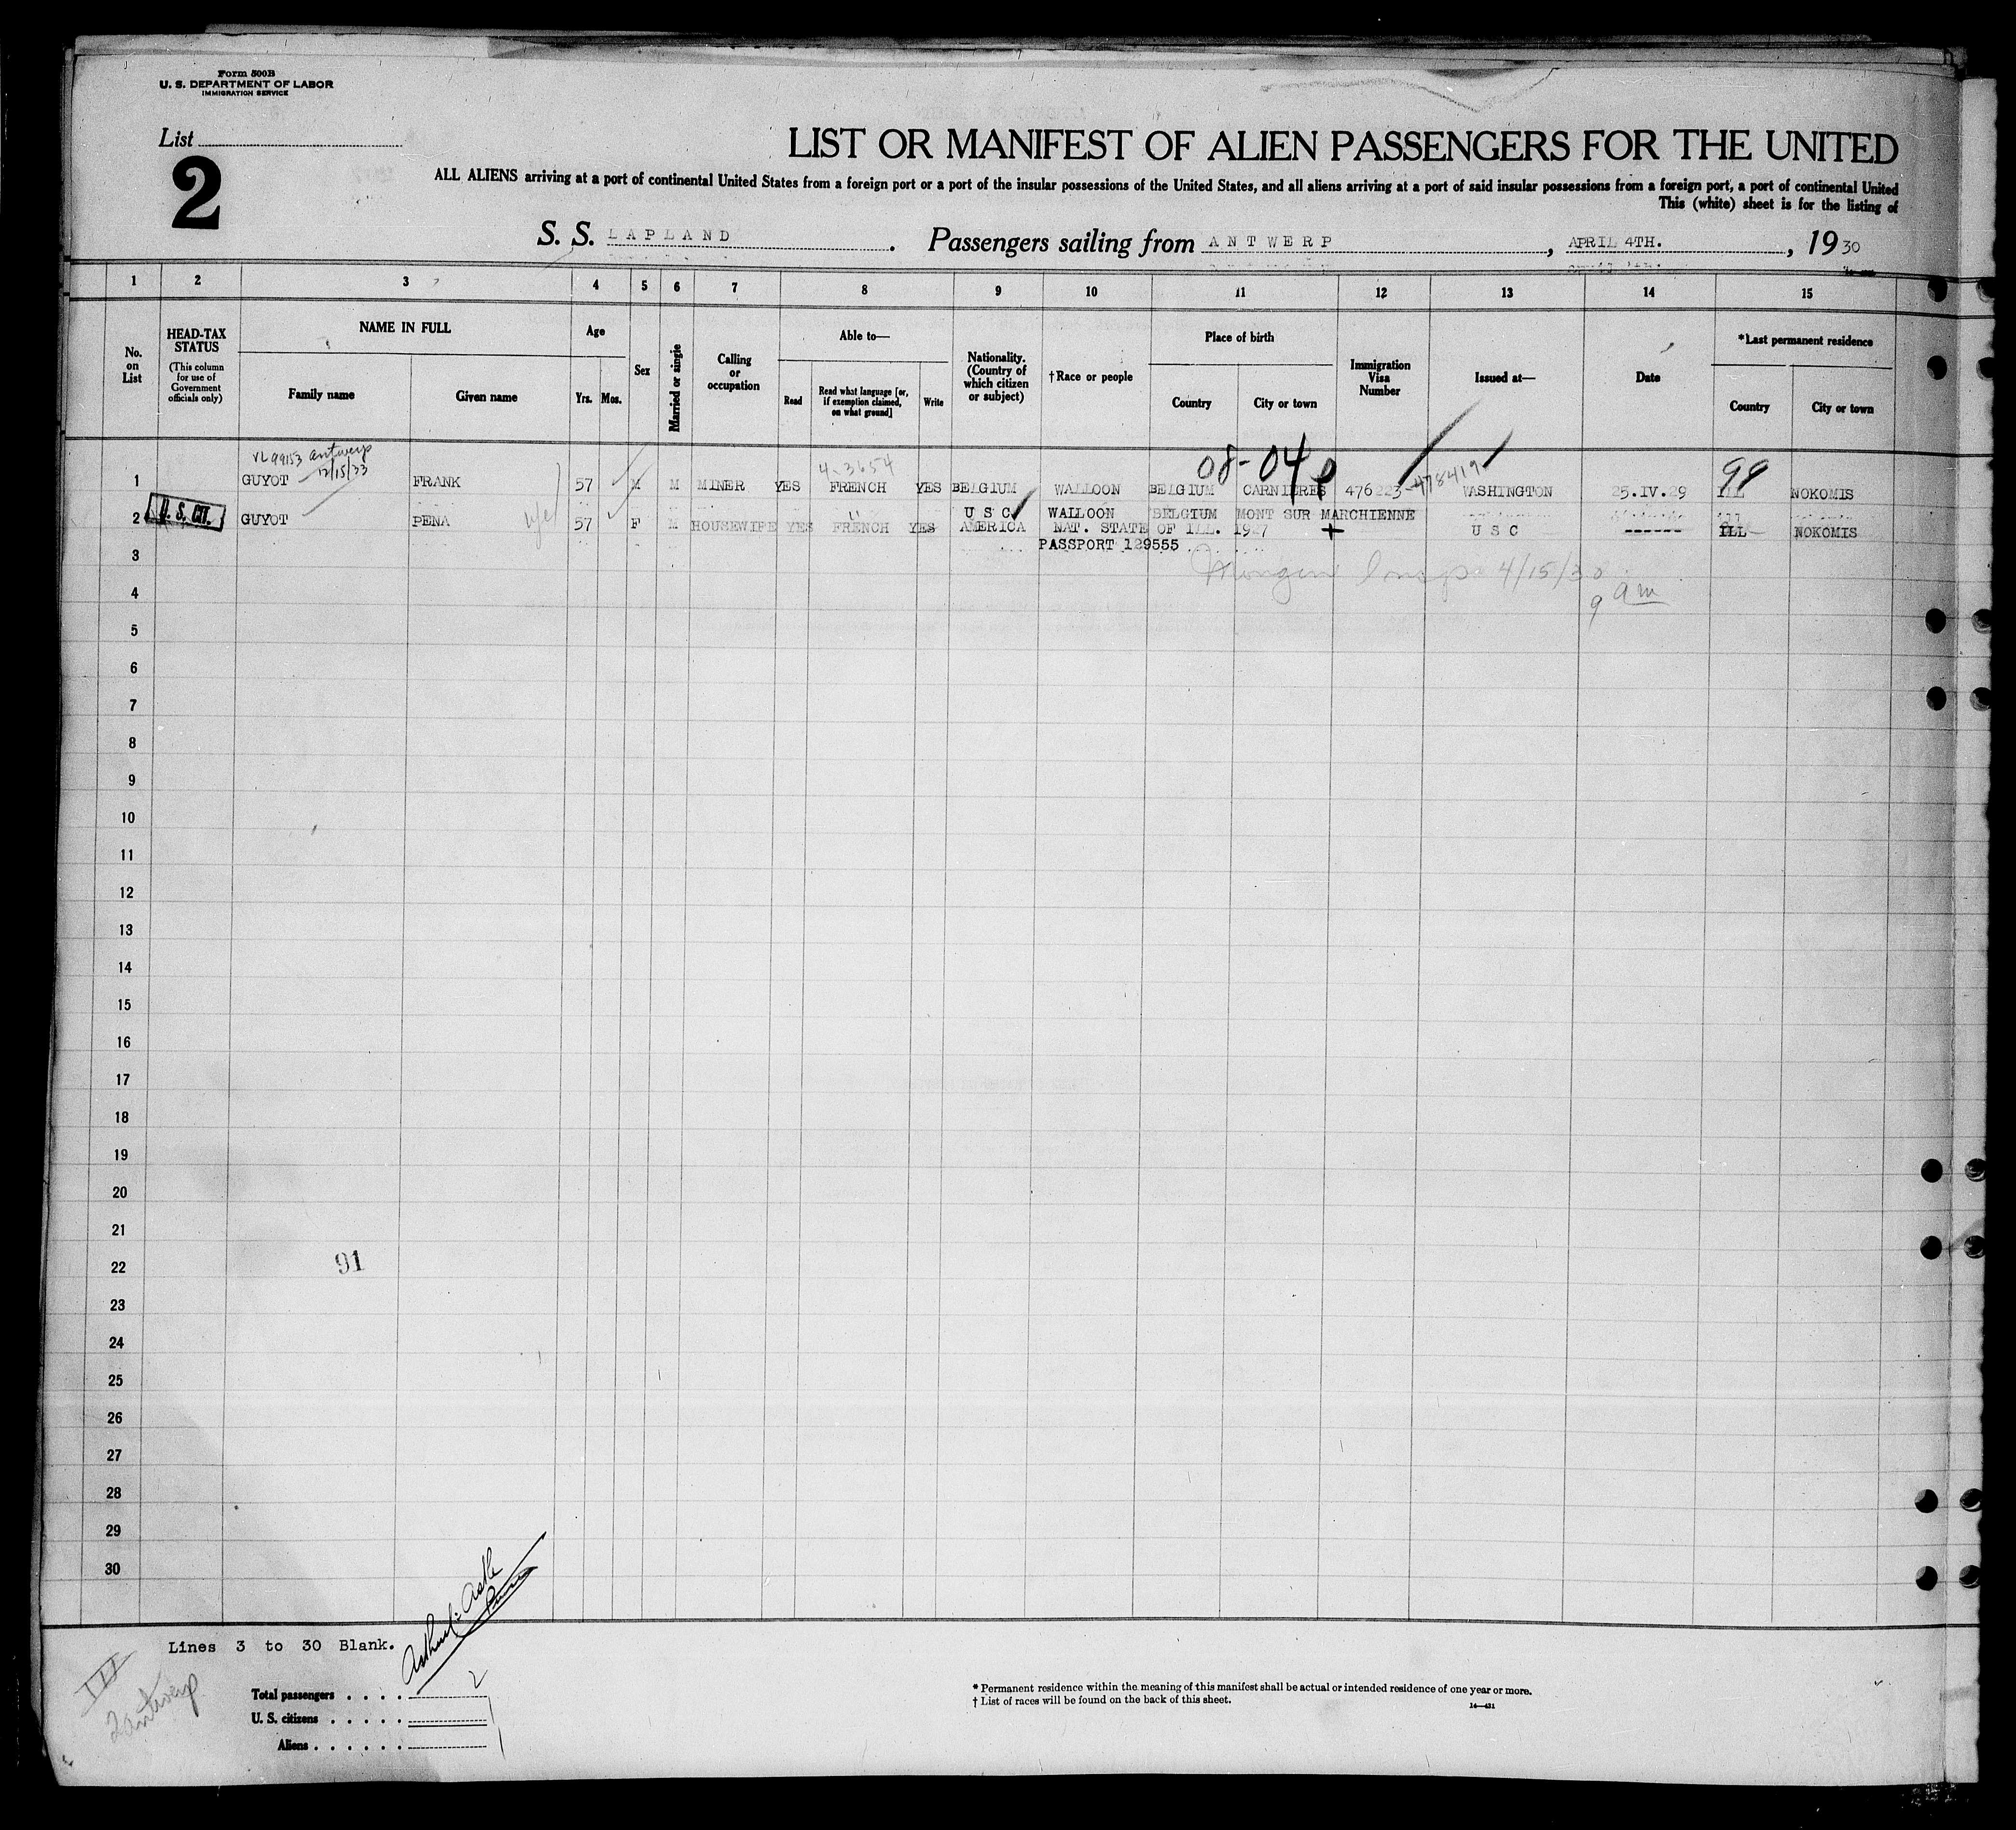 Form 500B
U. S. DEPARTMENT OF LABOR
IMMIGRATION SERVICE
List
2
LIST OR MANIFEST OF ALIEN PASSENGERS FOR THE UNITED
ALL ALIENS arriving at a port of continental United States from a foreign port or a port of the insular possessions of the United States, and all aliens arriving at a port of said insular possessions from a foreign port, a port of continental United
This (white) sheet is for the listing of
S. S. LAPLAND. Passengers sailing from ANTWERP, APRIL 4TH., 1930
1 2 3 4 5 6 7 8 9 10 11 12 13 14 15
No. on List
HEAD-TAX STATUS (This column for use of Government officials only)
NAME IN FULL
Family name Given name
Age
Yrs. Mos.
Sex
Married or single
Calling or occupation
Able to—
Read Read what language [or, if exemption claimed, on what ground] Write
Nationality. (Country of which citizen or subject)
†Race or people
Place of birth
Country City or town
Immigration Visa Number
Issued at—
Date
*Last permanent residence
Country City or town
VL 99153 Antwerp
12/15/33
4-3654
08-040
478419
99
1 GUYOT FRANK 57 M M MINER YES FRENCH YES BELGIUM WALLOON BELGIUM CARNIERES 476223 WASHINGTON 25.IV.29 ILL NOKOMIS
U S C WALLOON BELGIUM MONT SUR MARCHIENNE
2 U. S. CIT. GUYOT PENA 57 F M HOUSEWIFE YES FRENCH YES AMERICA NAT. STATE OF ILL. 1927 U S C ------ ILL NOKOMIS
PASSPORT 129555
3
4/15/30
9 am
4
5
6
7
8
9
10
11
12
13
14
15
16
17
18
19
20
21
22
91
23
24
25
26
27
28
29
30
Lines 3 to 30 Blank.
III
2 Antwerp
Total passengers . . . . 2
U. S. citizens . . . . . 1
Aliens . . . . . . 1
* Permanent residence within the meaning of this manifest shall be actual or intended residence of one year or more.
† List of races will be found on the back of this sheet.
14—431